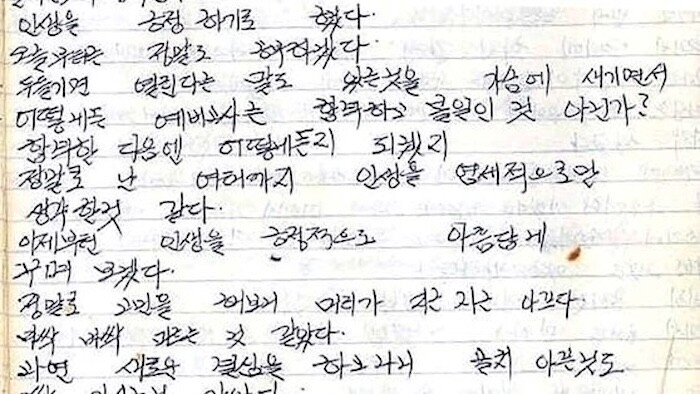 인생을 긍정 하기로 했다.
오늘부터는 정말로
두들기면 열린다는 말도 있는것을 가슴에 새기면서
어떻게든 예비고사는 합격하고 볼일인 것 아닌가?
합격한 다음엔 어떻게든지 되겠지
정말로 난 여태까지 인생을 염세적으로만
생각한것 같다.
이제부턴 인생을 긍정적으로 아름답게
꾸며 보겠다.
정말로 고민을 해보니 머리가 지근 지근 아프다
바싹 바싹 마르는 것 같았다.
과연 새로운 결심을 하고나니 골치 아픈것도